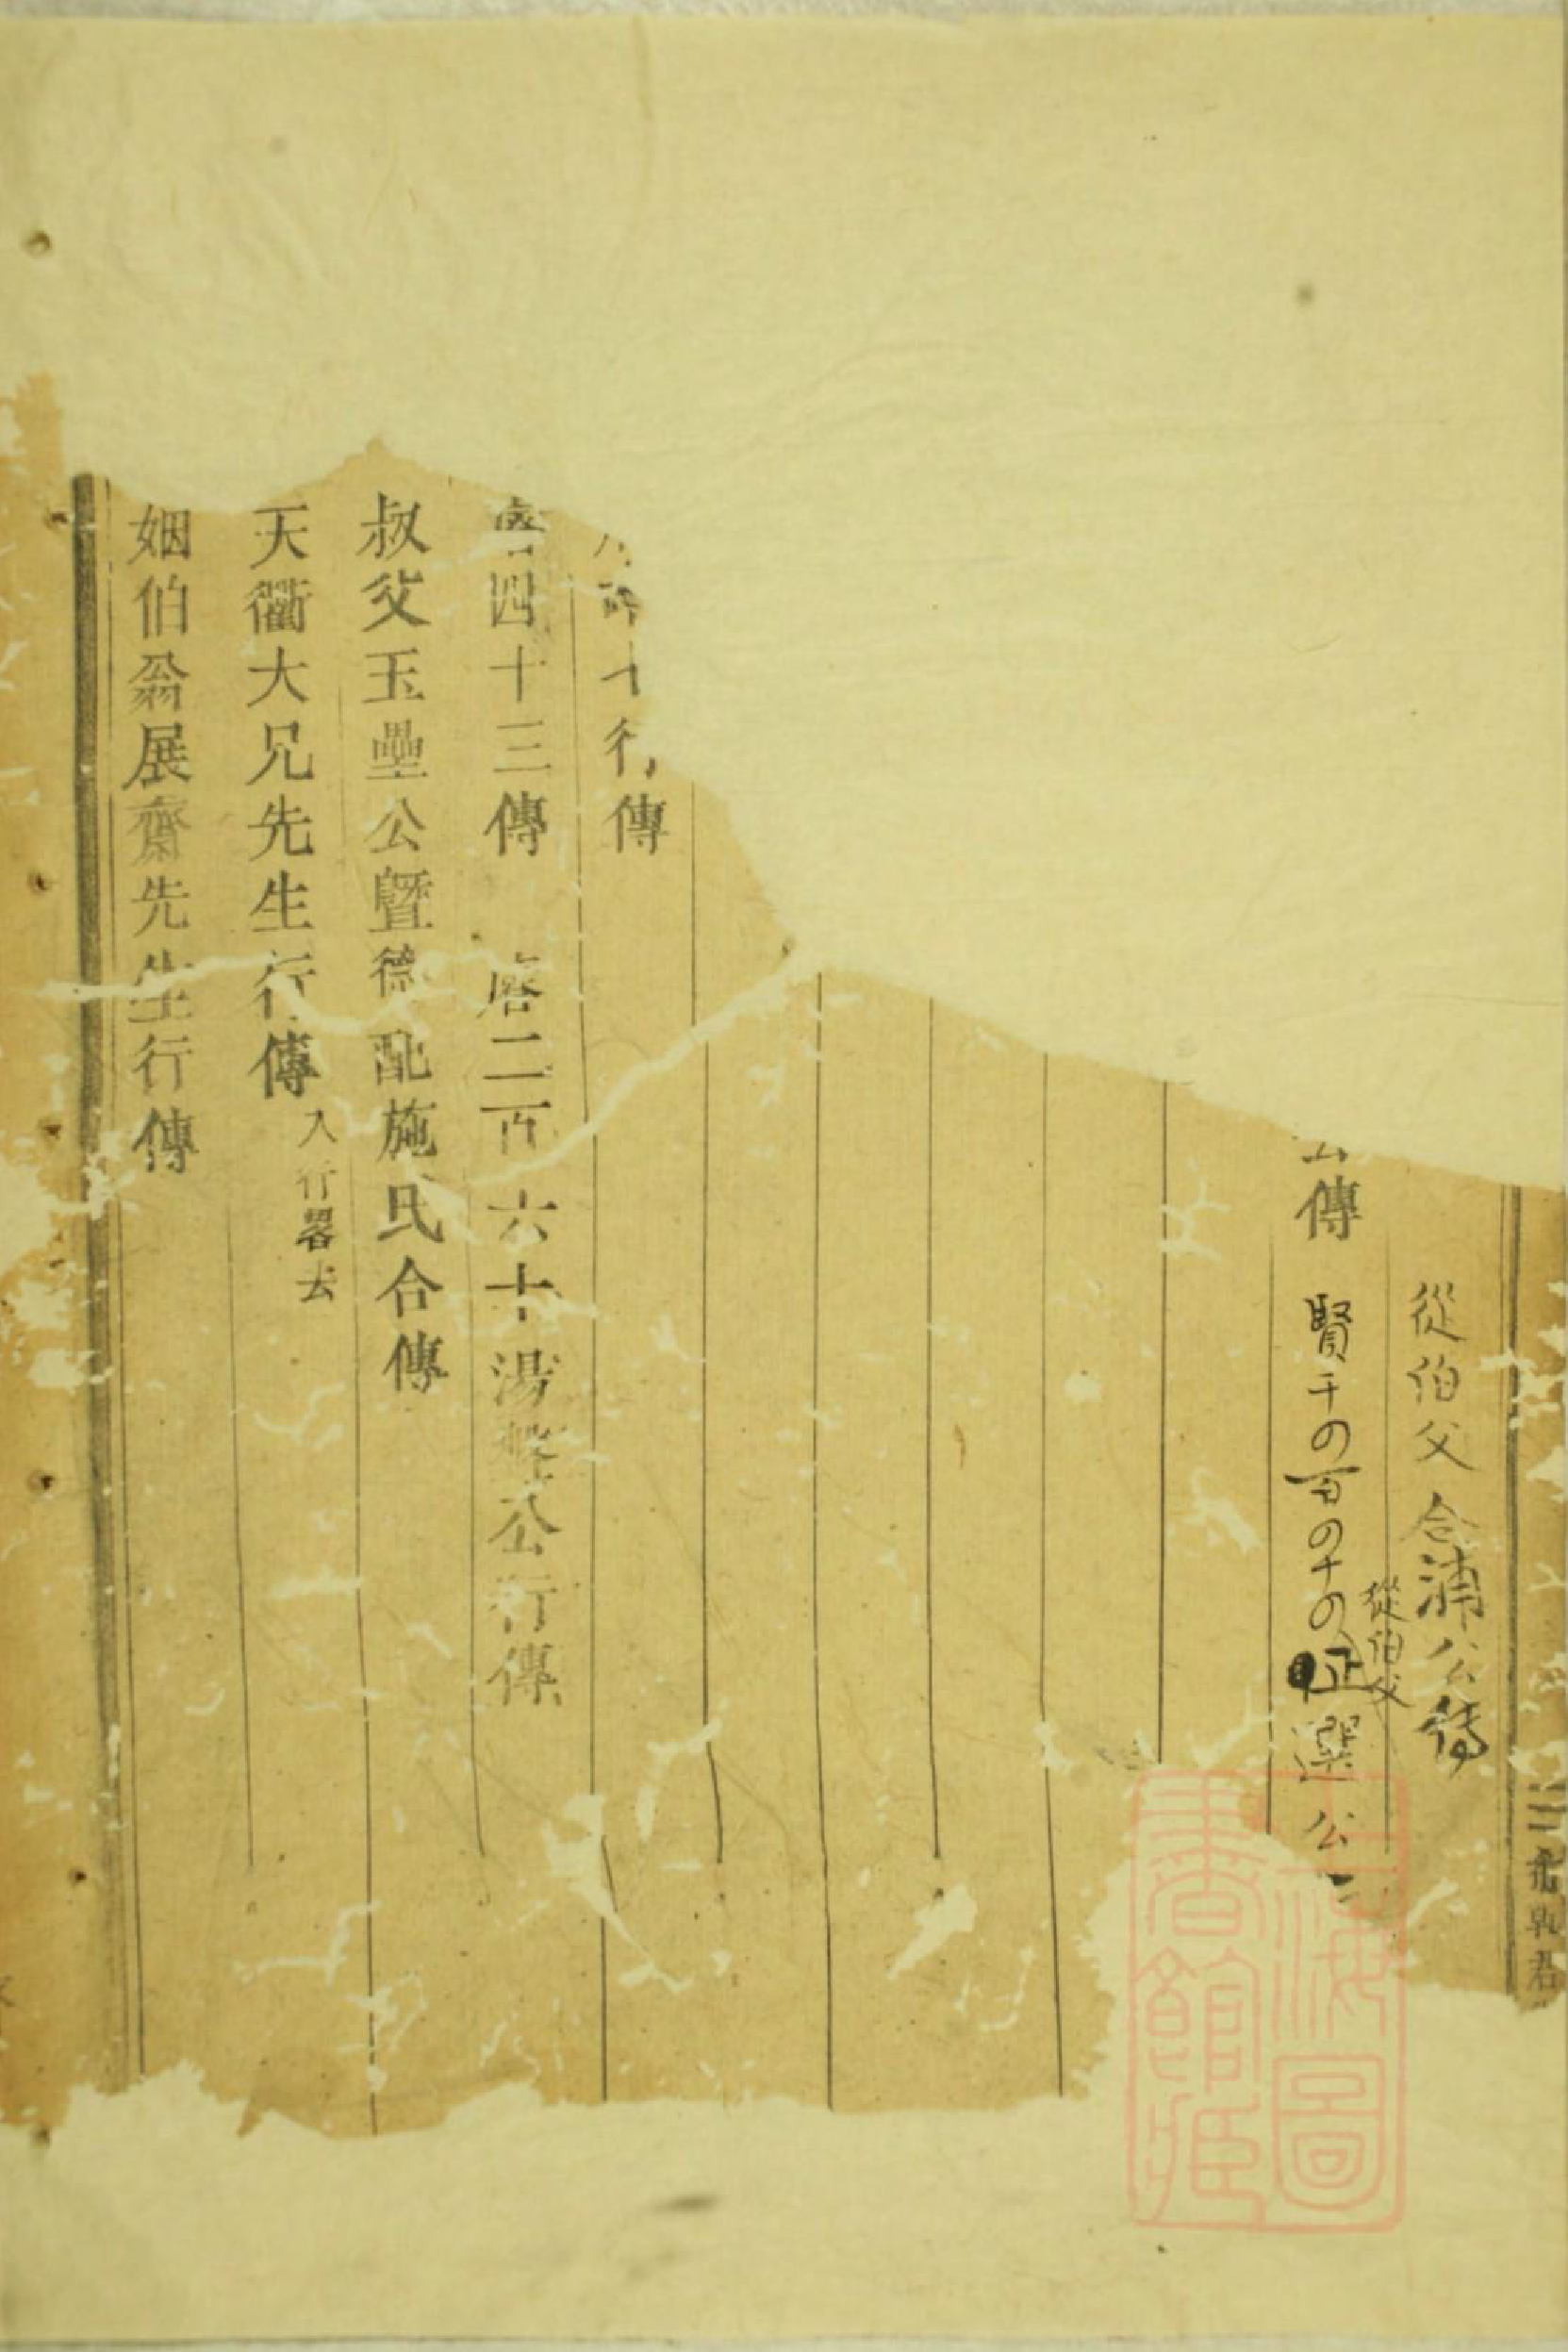 從伯父合浦公傳
公傳 賢千四百四十四 從伯父 選公
行傳
四十三傳 唐二百六十湯公行傳
叔父玉壘公暨德配施氏合傳
天衢大兄先生行傳 入行畧去
姻伯翁展齋先生行傳
上海圖書館藏